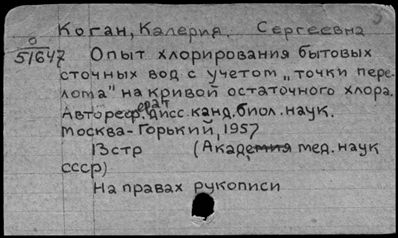 Коган, Калерия Сергеевна
0
51647
Опыт хлорирования бытовых
сточных вод с учетом „точки пере-
лома" на кривой остаточного хлора.
Автореферат дисс. канд. биол. наук.
Москва-Горький, 1957
13стр (Академия мед. наук
СССР)
На правах рукописи